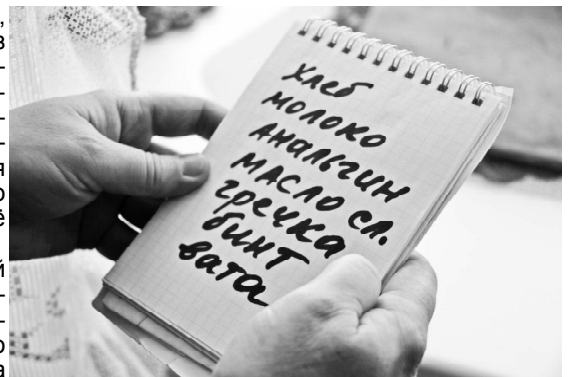 хлеб
молоко
анальгин
масло сл.
гречка
бинт
вата